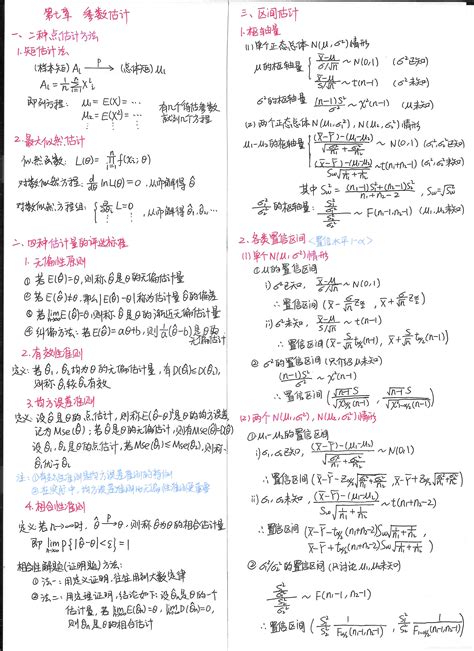 第七章 参数估计
一、二种点估计方法
1.矩估计法
(样本矩) A_L →^P (总体矩) μ_L
A_L = 1/n Σ_{i=1}^n X_i^L
即列方程: μ₁ = E(X) = …
μ₂ = E(X²) = …
有几个待估参数
就列几个方程
2.最大似然估计
似然函数: L(θ) = ∏_{i=1}^n f(x_i; θ)
对数似然方程: d/dθ ln L(θ) = 0, 从而解得 θ̂
对数似然方程组: { ∂/∂θ₁ L = 0, 从而解得 θ̂₁, θ̂₂ …
二、四种估计量的评选标准
1.无偏性准则
① 若 E(θ̂) = θ, 则称 θ̂ 是 θ 的无偏估计量
② 若 E(θ̂) ≠ θ, 那么 |E(θ̂) - θ| 称为估计量 θ̂ 的偏差
③ 若 lim_{n→∞} E(θ̂) = θ, 则称 θ̂ 是 θ 的渐近无偏估计量
④ 纠偏方法: 若 E(θ̂) = aθ + b, 则 1/a (θ̂ - b) 是 θ 的
无偏估计
2.有效性准则
定义: 若 θ̂₁, θ̂₂ 均为 θ 的无偏估计量, 有 D(θ̂₁) ≤ D(θ̂₂),
则称 θ̂₁ 较 θ̂₂ 有效
3.均方误差准则
定义: 设 θ̂ 是 θ 的点估计, 则称 E(θ̂-θ)² 是 θ 的均方误差
记为 Mse(θ̂); 若 θ̂ 是 θ 的无偏估计, 则有 Mse(θ̂) = D(θ̂)
设 θ̂₁, θ̂₂ 是 θ 的点估计, 若 Mse(θ̂₁) ≤ Mse(θ̂₂), 则
θ̂₁ 优于 θ̂₂
注: ① 有效性准则是均方误差准则的特例
② 在实际中, 均方误差准则比无偏性准则更重要
4.相合性准则
定义: 若 n→∞ 时, θ̂ →^P θ, 则称 θ̂ 为 θ 的相合估计量
即 lim_{n→∞} P{|θ̂ - θ| < ε} = 1
相合性解题(证明)方法:
① 法一: 用定义证明, 往往用到大数定律
② 法二: 用定理证明, 结论如下: 设 θ̂n 是 θ 的一个
估计量, 若 lim_{n→∞} E(θ̂n) = θ, lim_{n→∞} D(θ̂n) = 0,
则 θ̂n 是 θ 的相合估计
三、区间估计
1.枢轴量
(1)单个正态总体 N(μ, σ²) 情形
μ 的枢轴量 { (X̄-μ)/(σ/√n) ~ N(0,1) (σ² 已知)
(X̄-μ)/(S/√n) ~ t(n-1) (σ² 未知)
σ² 的枢轴量 (n-1)S²/σ² ~ χ²(n-1) (μ 未知)
(2)两个正态总体 N(μ₁, σ₁²), N(μ₂, σ₂²) 情形
μ₁-μ₂ 的枢轴量 { ((X̄-Ȳ)-(μ₁-μ₂))/√(σ₁²/n₁+σ₂²/n₂) ~ N(0,1) (σ₁², σ₂² 已知)
((X̄-Ȳ)-(μ₁-μ₂))/(Sω√(1/n₁+1/n₂)) ~ t(n₁+n₂-2) (σ₁², σ₂² 未知)
其中 Sω² = ((n₁-1)S₁²+(n₂-1)S₂²)/(n₁+n₂-2), Sω = √Sω²
σ₁²/σ₂² 的枢轴量: (S₁²/S₂²)/(σ₁²/σ₂²) ~ F(n₁-1, n₂-1) (μ₁, μ₂ 未知)
2.各类置信区间 <置信水平 1-α>
(1)单个 N(μ, σ²) 情形
① μ 的置信区间
i) σ² 已知, (X̄-μ)/(σ/√n) ~ N(0,1)
∴ 置信区间 (X̄ - σ/√n Z_{α/2}, X̄ + σ/√n Z_{α/2})
ii) σ² 未知, (X̄-μ)/(S/√n) ~ t(n-1)
∴ 置信区间 (X̄ - S/√n t_{α/2}(n-1), X̄ + S/√n t_{α/2}(n-1))
② σ² 的置信区间 (只介绍 μ 未知)
(n-1)S²/σ² ~ χ²(n-1)
∴ 置信区间
(2)两个 N(μ₁, σ₁²), N(μ₂, σ₂²) 情形
① μ₁-μ₂ 的置信区间
i) σ₁, σ₂ 已知, ((X̄-Ȳ)-(μ₁-μ₂))/√(σ₁²/n₁+σ₂²/n₂) ~ N(0,1)
∴ 置信区间 (X̄-Ȳ-Z_{α/2}√(σ₁²/n₁+σ₂²/n₂), X̄-Ȳ+Z_{α/2}√(σ₁²/n₁+σ₂²/n₂))
ii) σ₁, σ₂ 未知, ((X̄-Ȳ)-(μ₁-μ₂))/(Sω√(1/n₁+1/n₂)) ~ t(n₁+n₂-2)
∴ 置信区间 (X̄-Ȳ-t_{α/2}(n₁+n₂-2)Sω√(1/n₁+1/n₂),
X̄-Ȳ+t_{α/2}(n₁+n₂-2)Sω√(1/n₁+1/n₂))
② σ₁²/σ₂² 的置信区间 (只讨论 μ₁, μ₂ 未知)
(S₁²/S₂²)/(σ₁²/σ₂²) ~ F(n₁-1, n₂-1)
∴ 置信区间 (S₁²/S₂² 1/F_{α/2}(n₁-1,n₂-1), S₁²/S₂² 1/F_{1-α/2}(n₁-1,n₂-1))